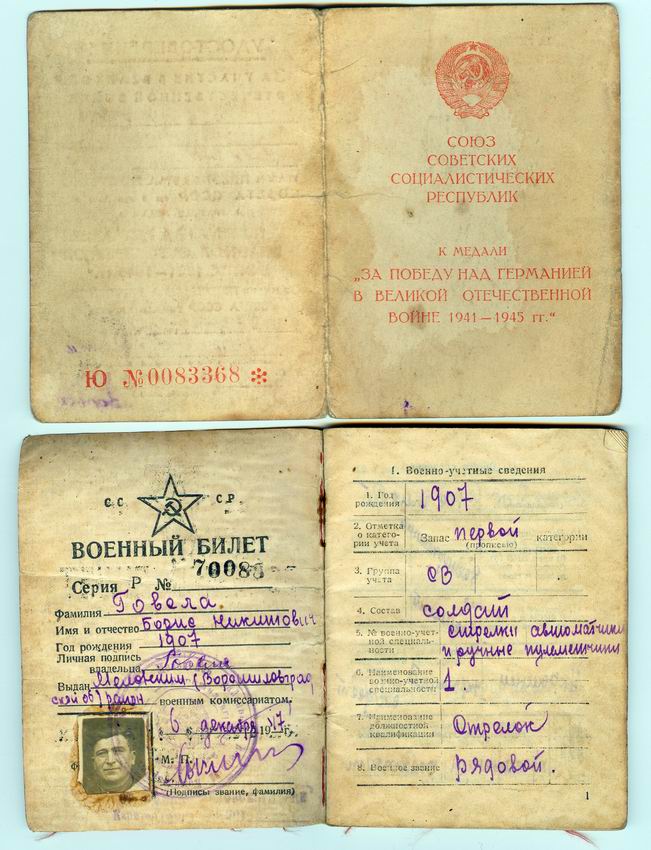 Ю №0083368 *
СОЮЗ
СОВЕТСКИХ
СОЦИАЛИСТИЧЕСКИХ
РЕСПУБЛИК
К МЕДАЛИ
„ЗА ПОБЕДУ НАД ГЕРМАНИЕЙ
В ВЕЛИКОЙ ОТЕЧЕСТВЕННОЙ
ВОЙНЕ 1941—1945 гг.“
СС СР
ВОЕННЫЙ БИЛЕТ
Серия Р № 70088
Фамилия Говела
Имя и отчество Борис Никитович
Год рождения 1907
Личная подпись
владельца
Выдан Меловским (Ворошиловград
ской об) район военным комиссариатом.
6 декабря 1947 г.
М. П.
(Подписи звание, фамилия)
1. Военно-учетные сведения
1. Год
рождения 1907
2. Отметка
о катего-
рии учета Запас первой категории
(прописью)
3. Группа
учета СВ
4. Состав солдат
5. № военно-учет-
ной специаль-
ности стрелки автоматчики
и ручные пулеметчики
6. Наименование
военно-учетной
специальности 1
7. Наименование
должностной
квалификации Стрелок
8. Военное звание рядовой.
1